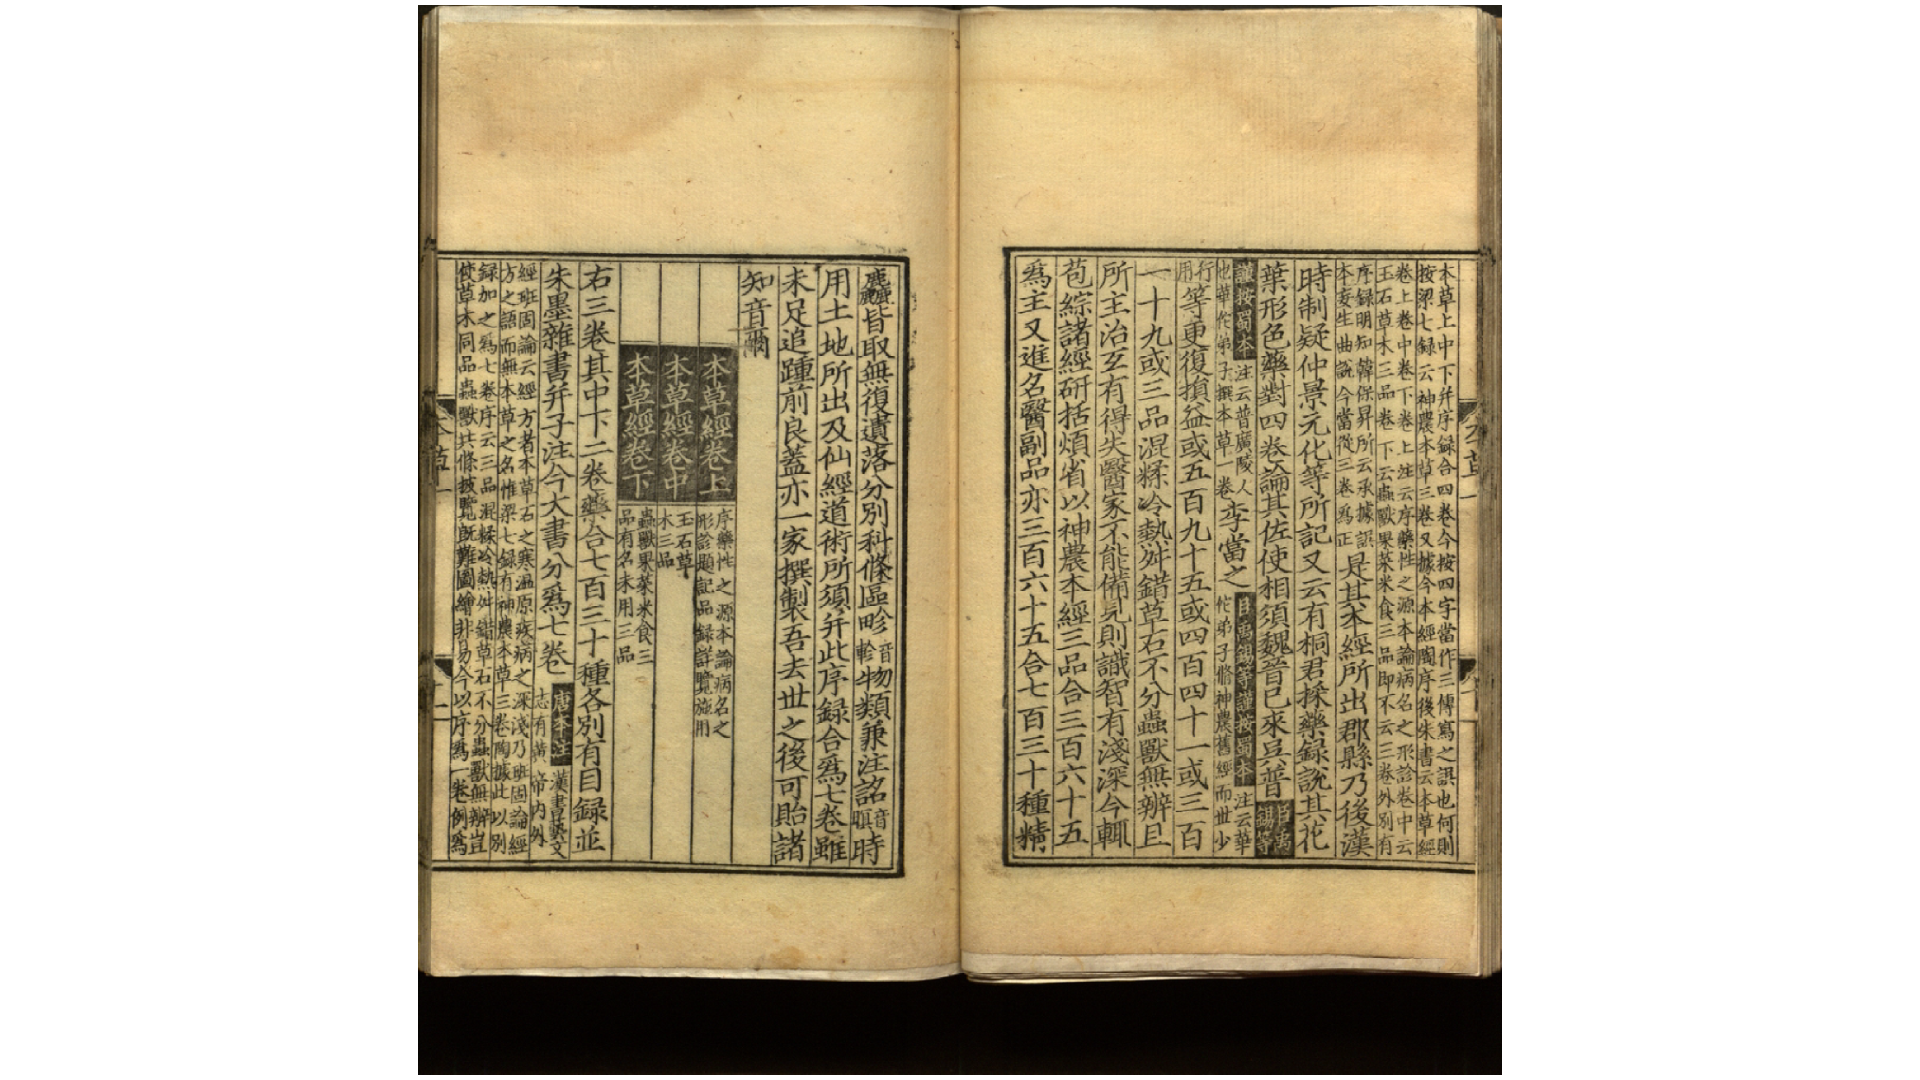 本草上中下并序録合四卷今按四字當作三傳寫之誤也何則
按梁七録云神農本草三卷又據今本經陶序後朱書云本草經
卷上卷中卷下卷上注云序藥性之源本論病名之形診卷中云
玉石草木三品卷下云蟲獸果菜米食三品即不云三卷外別有
序録明知韓保昇所云承據誤
本妄生曲説今當從三卷爲正 是其本經所出郡縣乃後漢
時制疑仲景元化等所記又云有桐君採藥録説其花
葉形色藥對四卷論其佐使相須魏晉已來吳普 臣禹錫等
謹按蜀本 注云普廣陵人也華佗弟子撰本草一卷 李當之 臣禹錫等謹按蜀本 注云華佗弟子脩神農舊經而世少
行用 等更復損益或五百九十五或四百四十一或三百
一十九或三品混糅冷熱舛錯草石不分蟲獸無辨且
所主治互有得失醫家不能備見則識智有淺深今輒
苞綜諸經研括煩省以神農本經三品合三百六十五
爲主又進名醫副品亦三百六十五合七百三十種精
麤皆取無復遺落分別科條區畛 音軫 物類兼注詺 音暝 時
用土地所出及仙經道術所須并此序録合爲七卷雖
未足追踵前良蓋亦一家撰製吾去世之後可貽諸
知音爾
本草經卷上 序藥性之源本論病名之形診題記品録詳覽施用
本草經卷中 玉石草木三品
本草經卷下 蟲獸果菜米食三品有名未用三品
右三卷其中下二卷藥合七百三十種各別有目録並
朱墨雜書并子注今大書分爲七卷 唐本注 漢書藝文
志有黃帝内外
經班固論云經方者本草石之寒温原疾病之深淺乃班固論經
方之語而無本草之名惟梁七録有神農本草三卷陶據此以別
録加之爲七卷序云三品混糅冷熱舛錯草石不分蟲獸無辨豈
使草木同品蟲獸共條披覽既難圖繪非易今以序爲一卷例爲